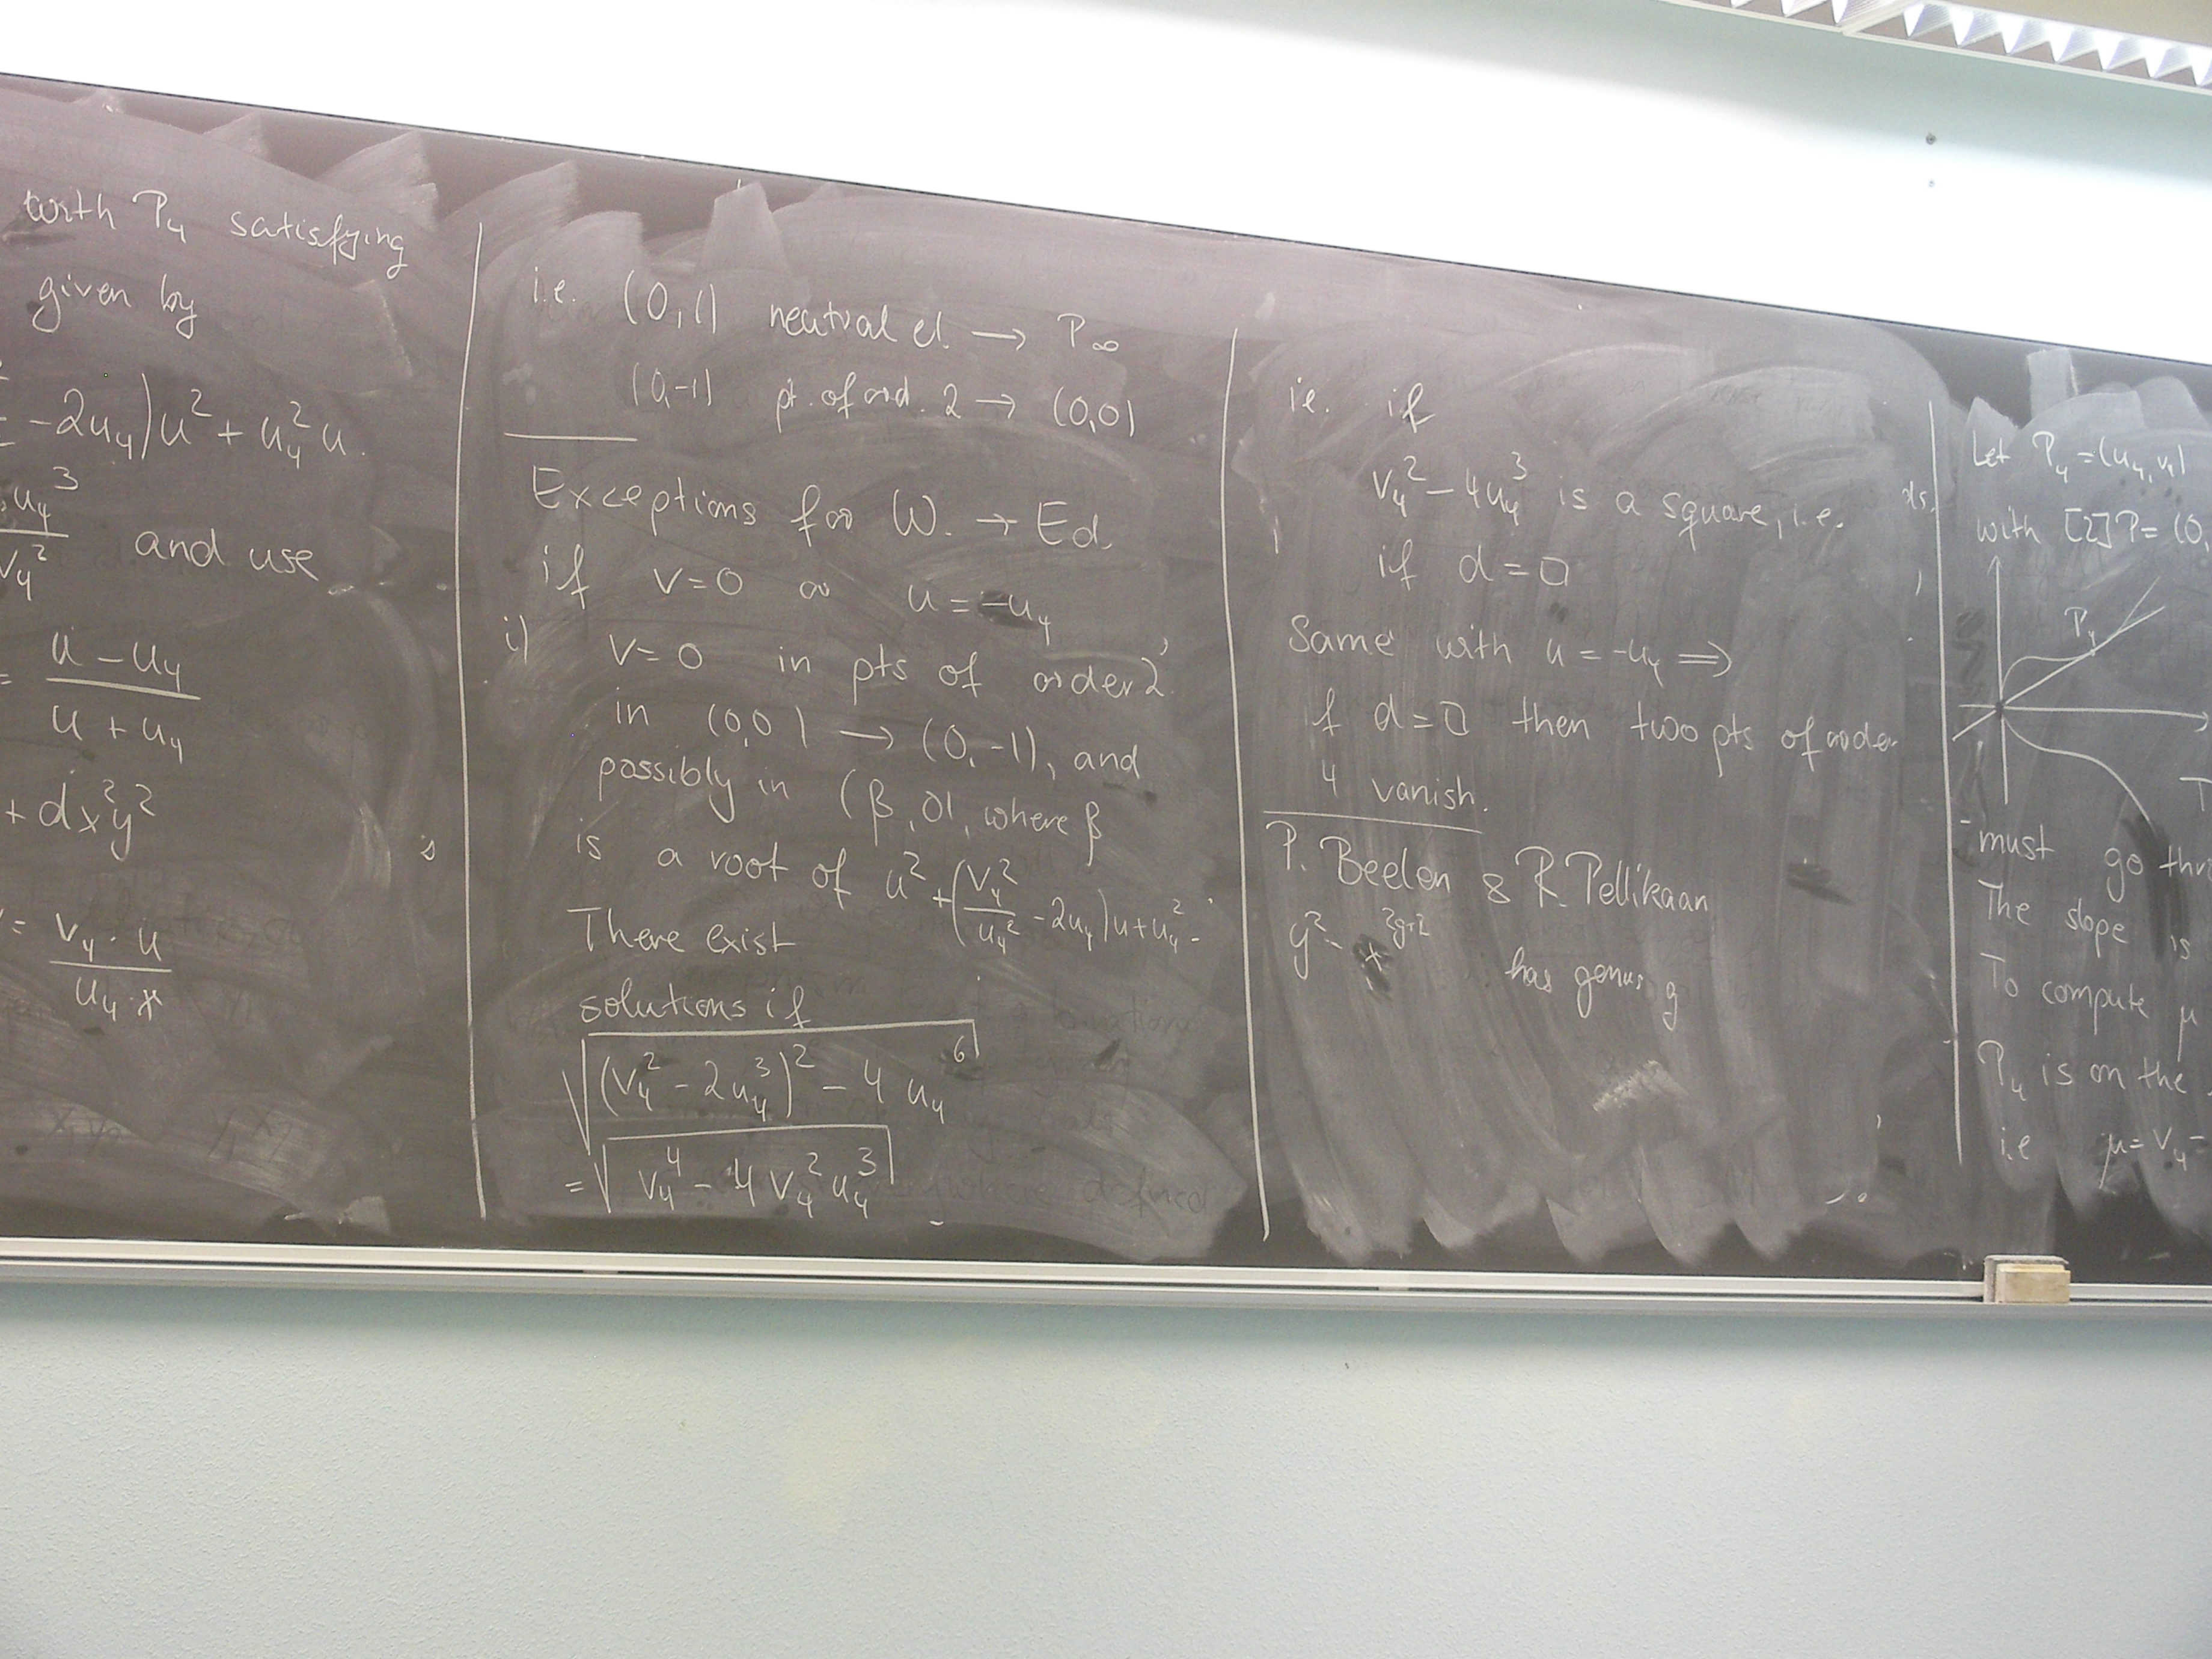 with P₄ satisfying
given by
-2u₄)u² + u₄²u.
u₄³
v₄² and use
= u - u₄
u + u₄
+ dx²y²
= v₄ · u
u₄ · x
i.e. (0,1) neutral el. → P∞
(0,-1) pt. of ord. 2 → (0,0)
Exceptions for W. → Ed.
if v=0 or u = -u₄
i) v=0 in pts of order 2,
in (0,0) → (0,-1), and
possibly in (β,0), where β
is a root of u² + (v₄²/u₄² - 2u₄)u + u₄².
There exist
solutions if
√((v₄² - 2u₄³)² - 4u₄⁶)
= √(v₄⁴ - 4v₄²u₄³)
ie. if
v₄² - 4u₄³ is a square, i.e.
if d = □
Same with u = -u₄ ⇒
if d = □ then two pts of order
4 vanish.
P. Beelen & R. Pellikaan
y² - x^{2g+2} has genus g
Let P₄ = (u₄, v₄)
with [2]P = (0,
P₄
must go thr
The slope is
To compute μ
P₄ is on the
i.e μ = v₄